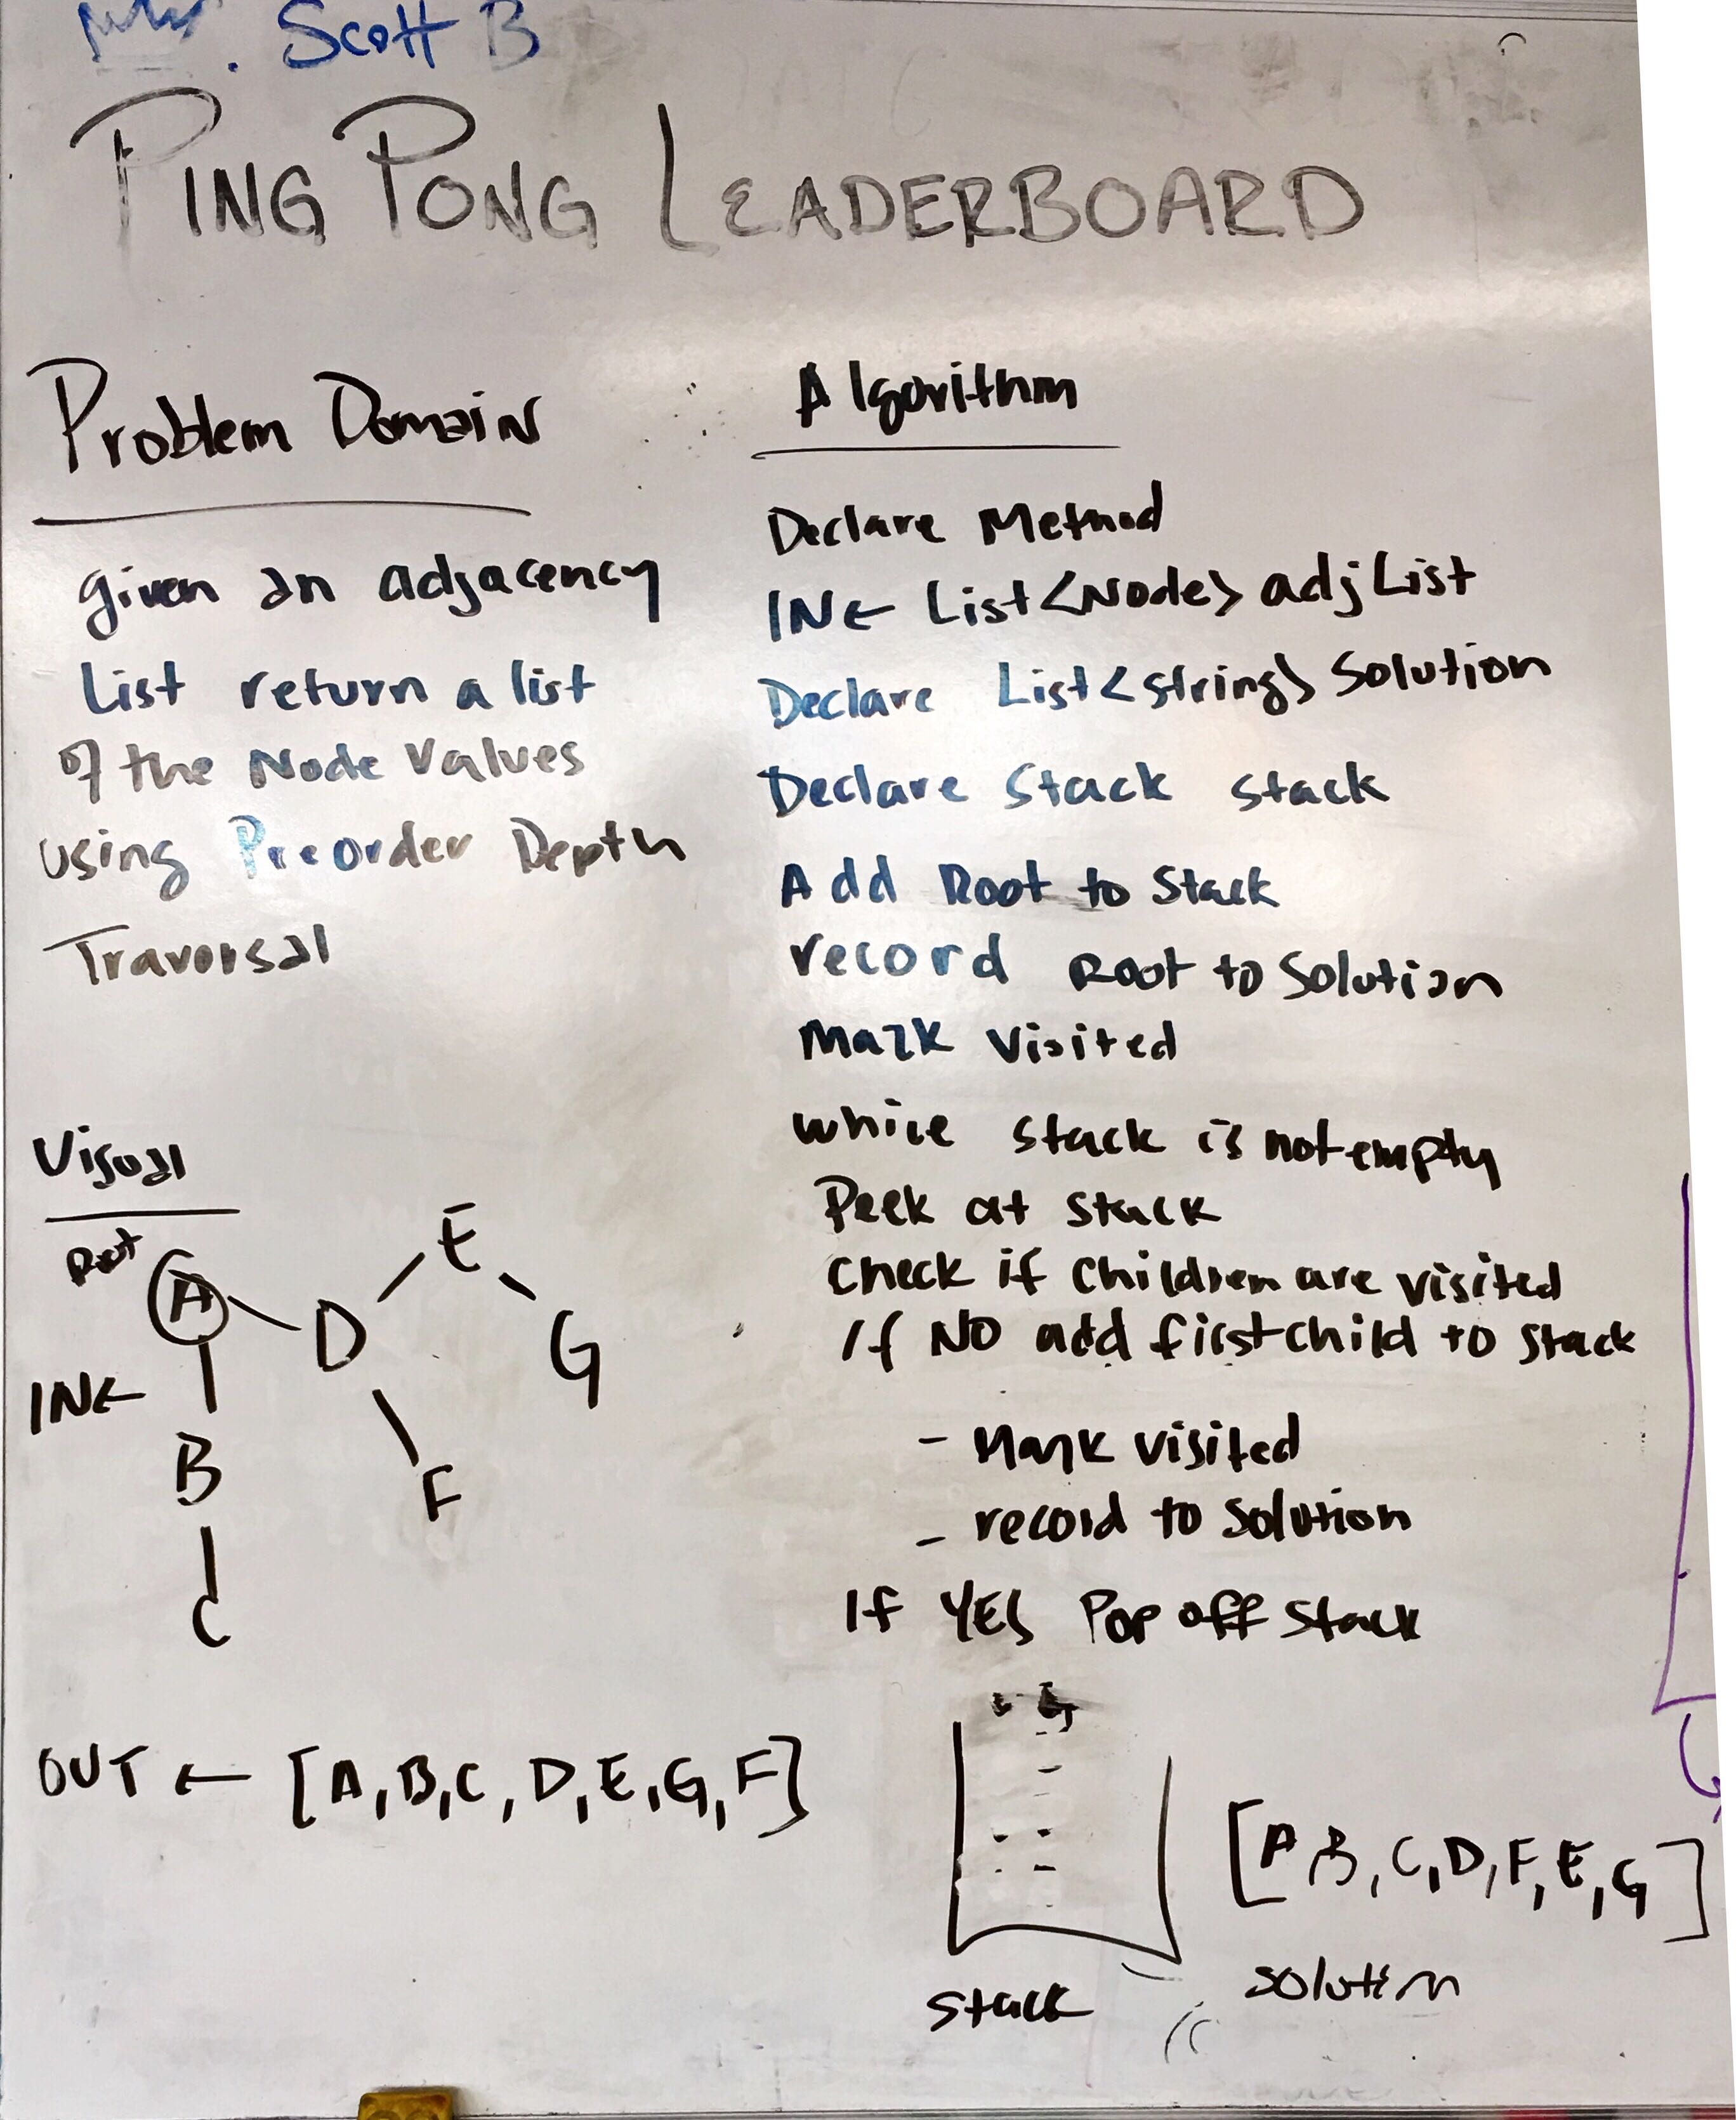 Scott B
PING PONG LEADERBOARD
Problem Domain
given an adjacency
List return a list
of the Node Values
using Preorder Depth
Traversal
Visual
Root
A D E G
IN←
B F
C
OUT ← [A, B, C, D, E, G, F]
Algorithm
Declare Method
IN← List<Node> adjList
Declare List<string> Solution
Declare Stack stack
Add Root to Stack
record Root to Solution
Mark Visited
while stack is not empty
Peek at stack
check if children are visited
If NO add first child to stack
- Mark visited
- record to solution
If YES Pop off Stack
stack
[A B, C, D, F, E, G]
solution